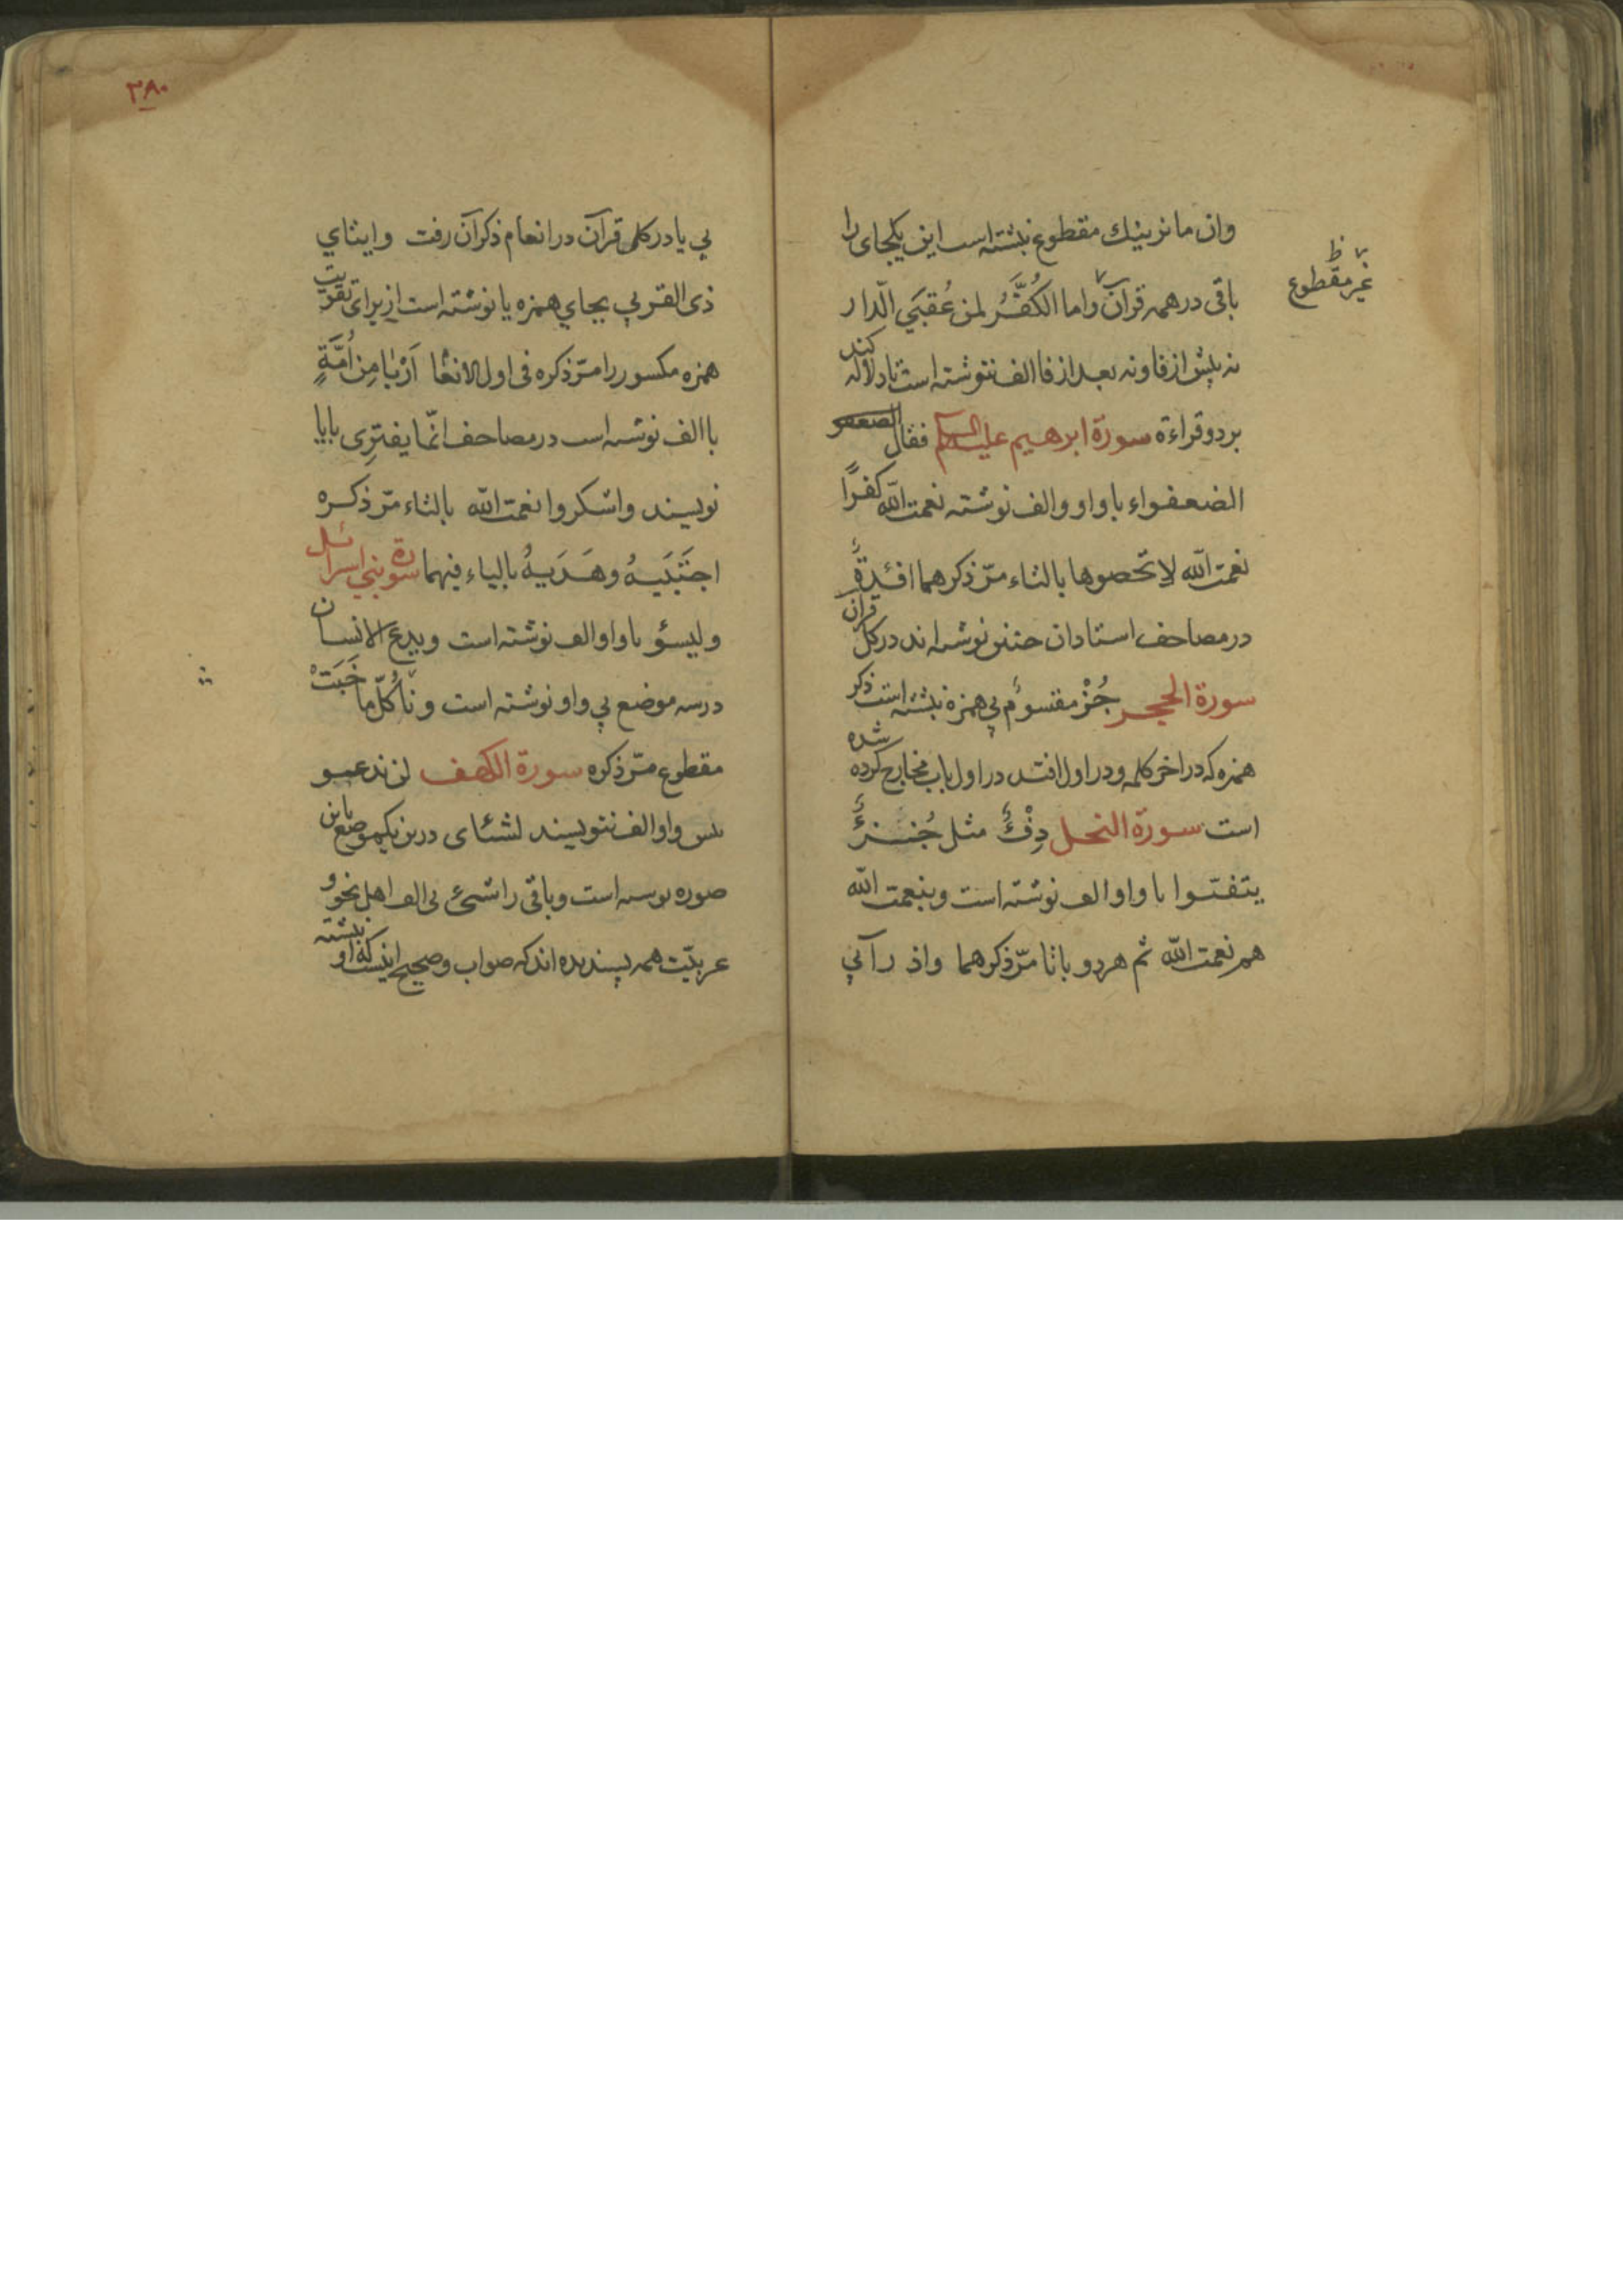 وان ما نرینك مقطوع نبشته است این یکجای را
باقی در همه قرآن واما الكُفَّرُ لمن عُقبَی الدار
غیر مقطوع ظ
نه پیش از فا ونه بعد از فا الف ننوشته است تا دلاله کند
بر دو قراءة سورة ابرهیم علیه السلم فقال
الضعفواء با واو والف نوشته نعمت الله كفرًا
نعمت الله لا تحصوها بالتاء مرّ ذکرهما افئدةُ
در مصاحف استادان چنین نوشته اند در کل قرآن
سورة الحجر جُزْ مقسومٌ بی همزه نبشته است ذکر
همزه که در اخر کلمه ودر اول افتد در اول باب مخارج کرده شده
است سورة النحل دِفْءٌ مثل جُزءٌ
یتفیّوا با واو الف نوشته است وبنعمت الله
هم نعمت الله ثم هر دو با تا مرّ ذکرهما واذ رآنی
٣٨٠
بی یا در کل قرآن در انعام ذکر آن رفت وایتای
ذی القربی بجای همزه یا نوشته است از برای تقویت
همزه مکسور را مرّ ذکره فی اول الانعا اَرْبٰا مِن اُمَّةٍ
با الف نوشته است در مصاحف انّما یفترِی بایا
نویسند واشکروا نعمت الله بالتاء مرّ ذکره
اجتَبَیهُ وهَدَیهُ بالیاء فیهما سورة بنی اسرائل
ولیسؤ با واو الف نوشته است ویدع الانسان
در سه موضع بی واو نوشته است ونٰا كُلّما خَبَتْ
مقطوع مرّ ذکره سورة الکهف لن ندعو
پس واو الف ننویسند لشئای درین یکموضع باین
صوره نوشته است وباقی را شیء بی الف اهل نحو و
عربیّت همه پسندیده اند که صواب وصحیح اینست که او نبشته